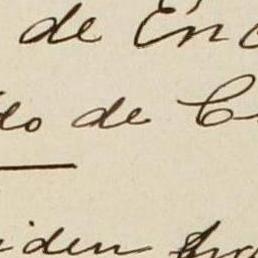 de En
do de C
iden